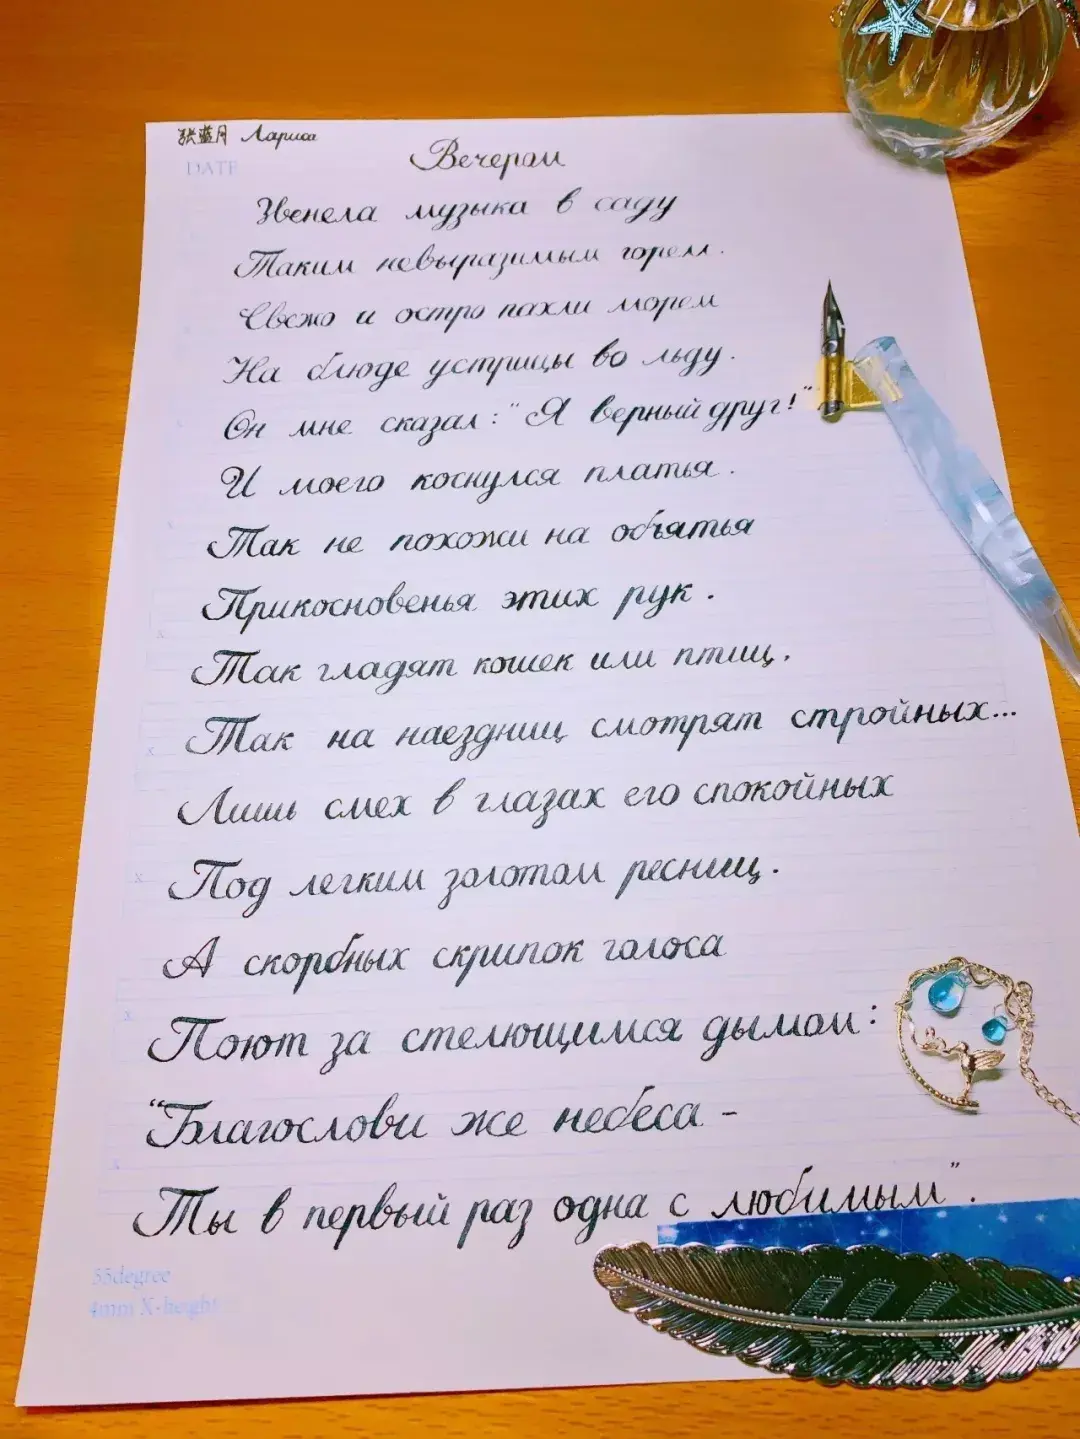 张蓝月 Лариса
DATE
Вечером
Звенела музыка в саду
Таким невыразимым горем.
Свежо и остро пахли морем
На блюде устрицы во льду.
Он мне сказал: "Я верный друг!"
И моего коснулся платья.
Так не похожи на объятья
Прикосновенья этих рук.
Так гладят кошек или птиц,
Так на наездниц смотрят стройных...
Лишь смех в глазах его спокойных
Под легким золотом ресниц.
А скорбных скрипок голоса
Поют за стелющимся дымом:
"Благослови же небеса -
Ты в первый раз одна с любимым".
55degree
4mm X-height